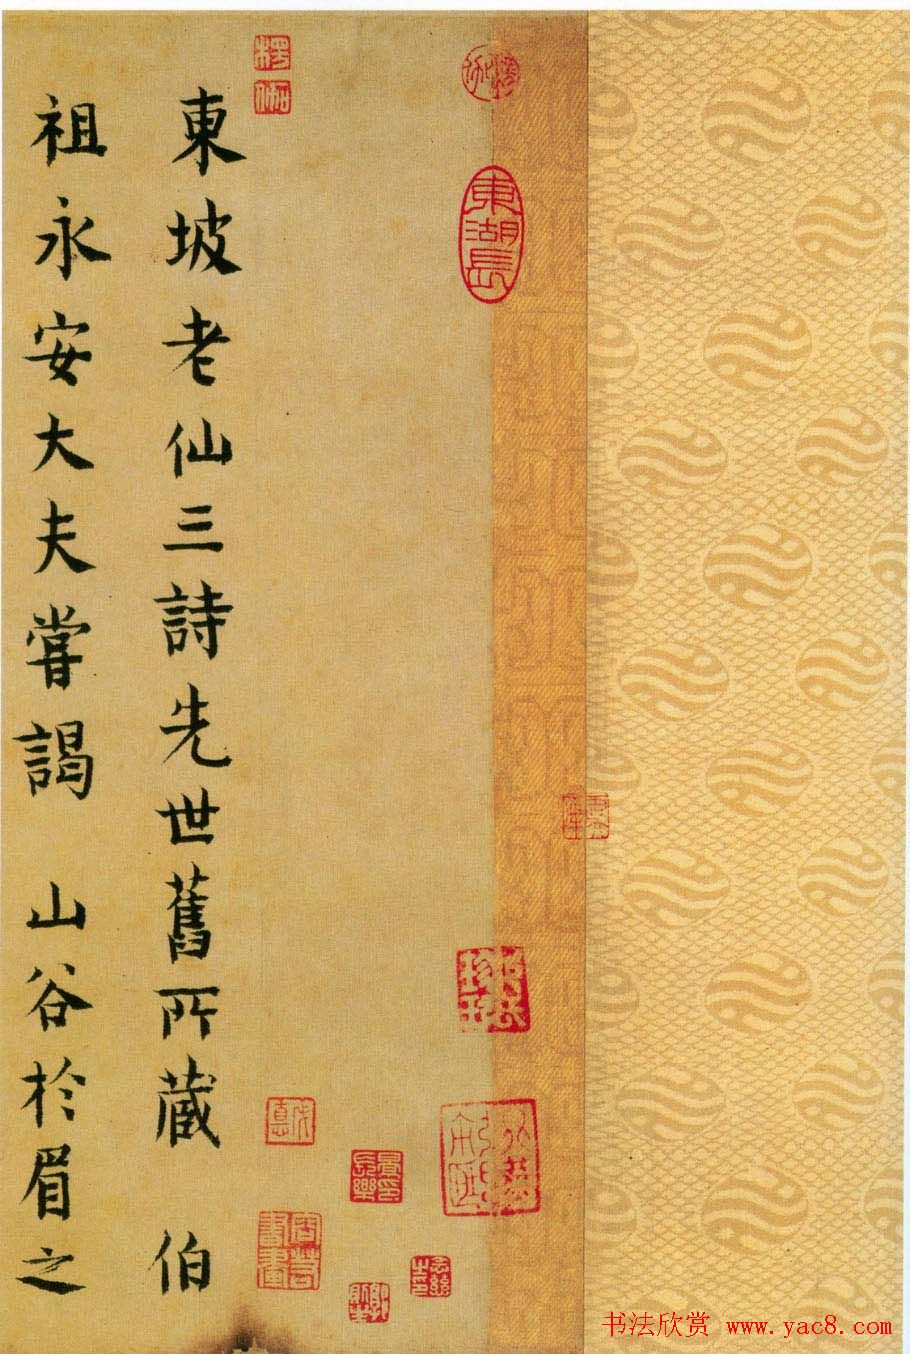 東坡老仙三詩先世舊所蔵 伯
祖永安大夫嘗謁 山谷於眉之
東湖長
楞伽
书法欣赏 www.yac8.com